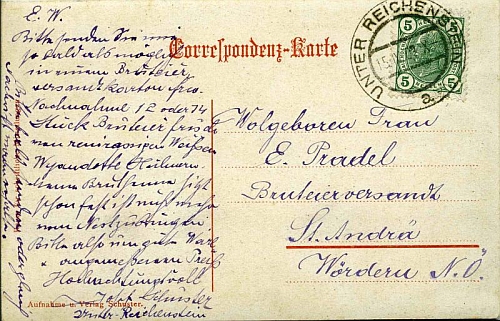 E. W.
Bitte senden Sie mir
so bald als möglich
in einem Bruteier
versantkarton pro.
Nachnahme 12 oder 14
Stück Bruteier frisch
von reinrassigen Weißen
Wyandotte Hühnern.
Bruthenne sitzt
schon fest ist muß mehr
vom Nest zu bringen
Bitte also um gute Ware
u. angemessenen Preiß
Hochachtungsvoll
Josef Schuster
Unter-Reichenstein
Correspondenz-Karte
UNTER REICHENSTEIN
5 5
5 5
Wolgeboren Frau
E. Pradel
Bruteierversandt
St. Andrä
Wördern N. Ö.
Aufnahme u. Verlag Schuster.